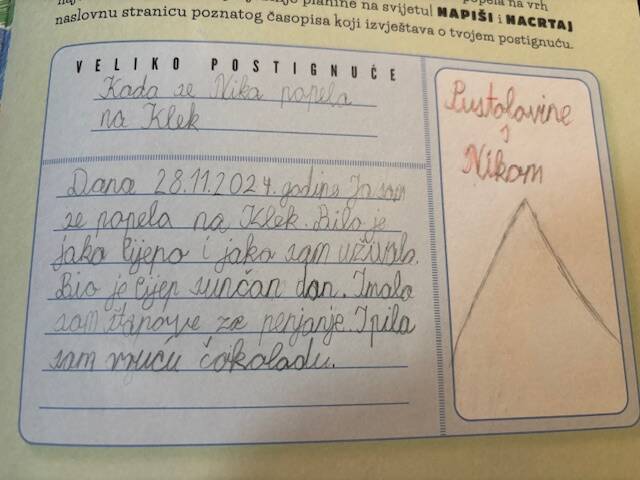 planine na svijetu! NAPIŠI i NACRTAJ
naslovnu stranicu poznatog časopisa koji izvještava o tvojem postignuću.
VELIKO POSTIGNUĆE
Kada se Nika popela
na Klek
Dana 28.11.2024. godine Ja sam
se popela na Klek. Bilo je
jako lijepo i jako sam uživala.
Bio je lijep sunčan dan. Imala
sam štapove za penjanje. I pila
sam vruću čokoladu.
Pustolovine
s
Nikom